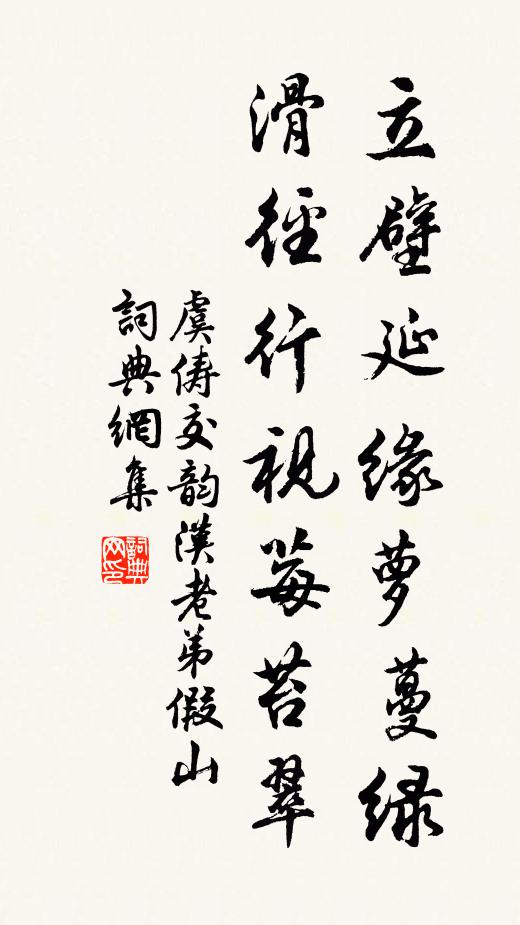 立壁延緣夢蔓綠
滑徑行視莓苔翠
虞儔交韵漢老弟假山
詞典網集
詞典網印